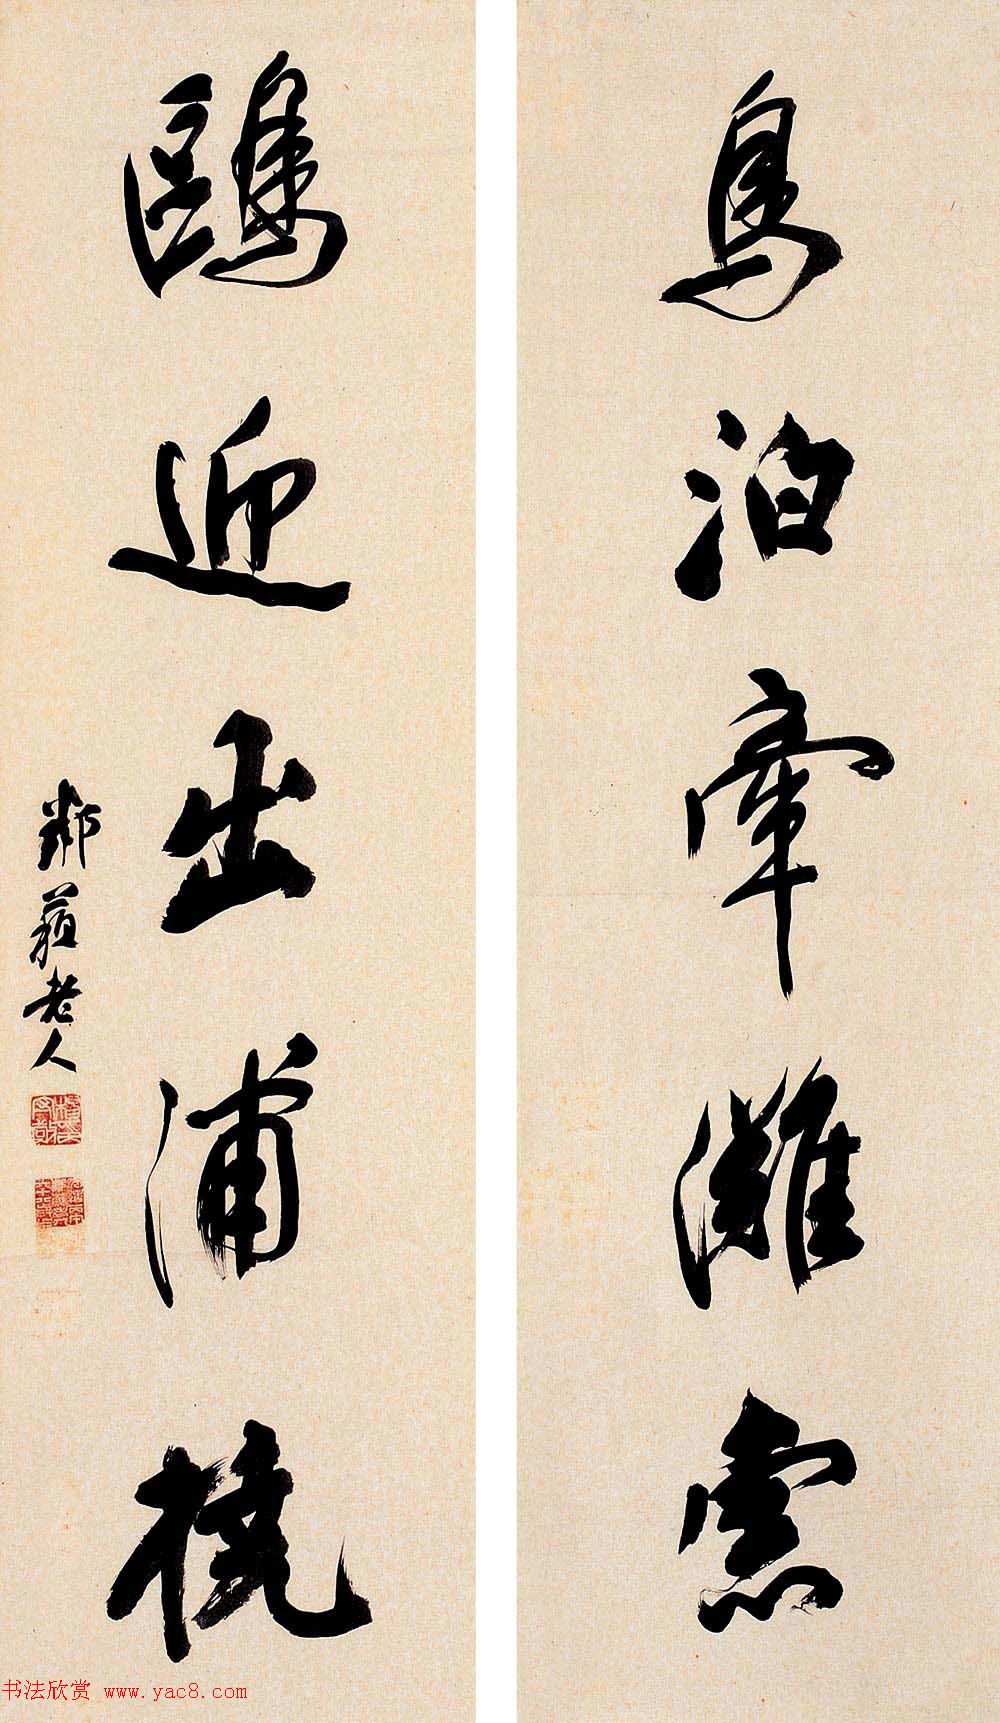 鳥泊牽灘索
鷗迎出浦橈
鄰蘇老人
书法欣赏 www.yac8.com